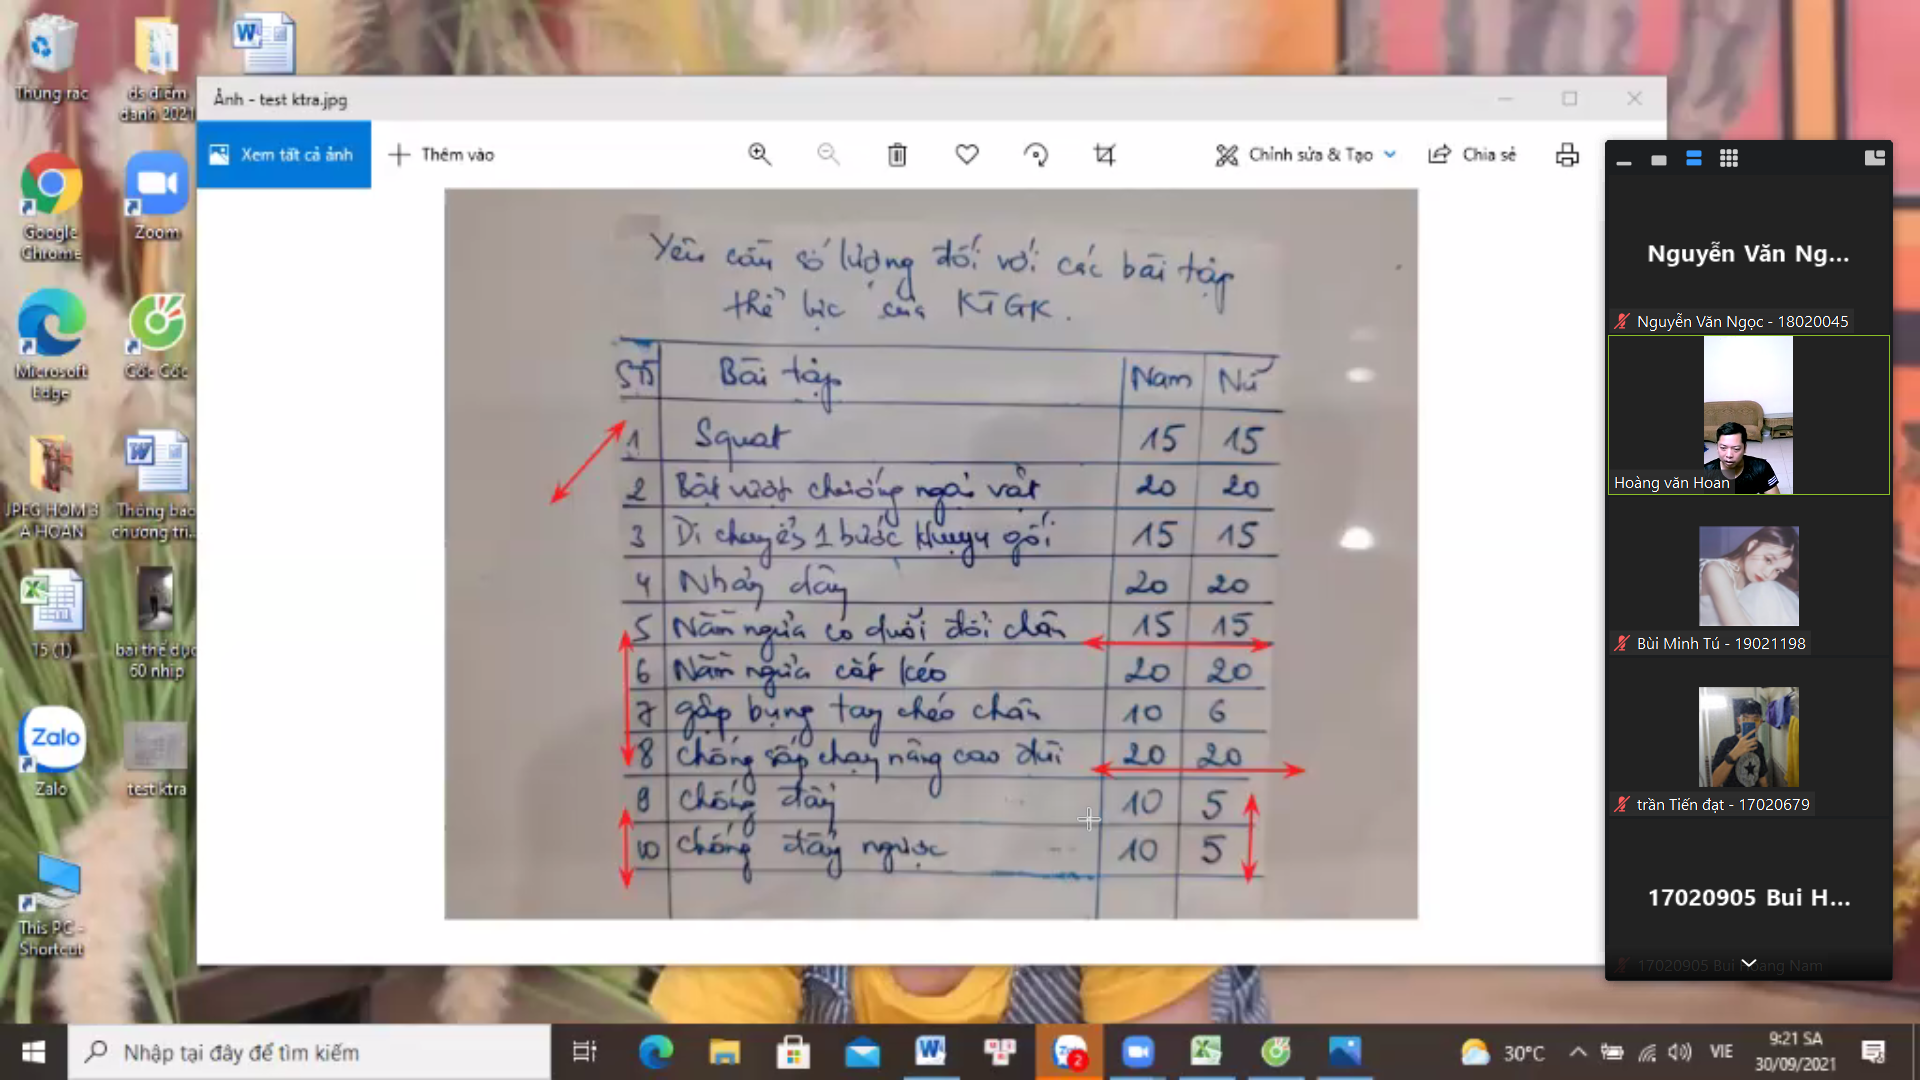 Thùng rác
ds điểm danh 2021
Ảnh - test ktra.jpg
Xem tất cả ảnh
Thêm vào
Chỉnh sửa & Tạo
Chia sẻ
Google Chrome
Zoom
Microsoft Edge
Cốc Cốc
JPEG HOM 3 A HOAN
Thông báo chương trì...
15 (1)
bài thể dục 60 nhịp
Zalo
Zalo
test ktra
This PC - Shortcut
Yêu cầu số lượng đối với các bài tập
thể lực của KTGK.
STT Bài tập Nam Nữ
1 Squat 15 15
2 Bật vượt chướng ngại vật 20 20
3 Di chuyển 1 bước khuỵu gối 15 15
4 Nhảy dây 20 20
5 Nằm ngửa co duỗi đổi chân 15 15
6 Nằm ngửa cắt kéo 20 20
7 gập bụng tay chéo chân 10 6
8 Chống sấp chạy nâng cao đùi 20 20
9 Chống đẩy 10 5
10 Chống đẩy ngược 10 5
Nguyễn Văn Ng...
Nguyễn Văn Ngọc - 18020045
Hoàng văn Hoan
Bùi Minh Tú - 19021198
trần Tiến đạt - 17020679
17020905 Bui H...
17020905 Bui Hoang Nam
Nhập tại đây để tìm kiếm
2
30°C
VIE
9:21 SA
30/09/2021